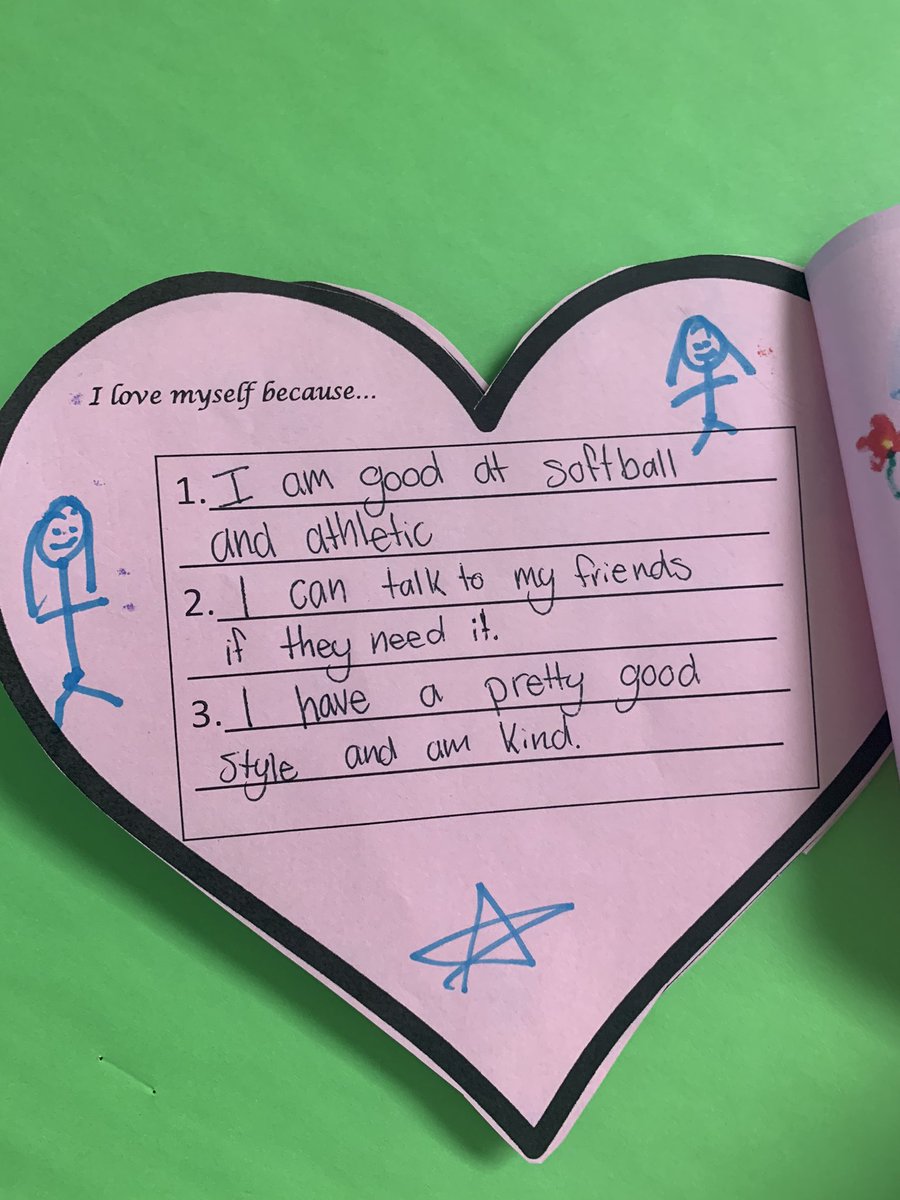 I love myself because...
1. I am good at softball
and athletic
2. I can talk to my friends
if they need it.
3. I have a pretty good
style and am kind.